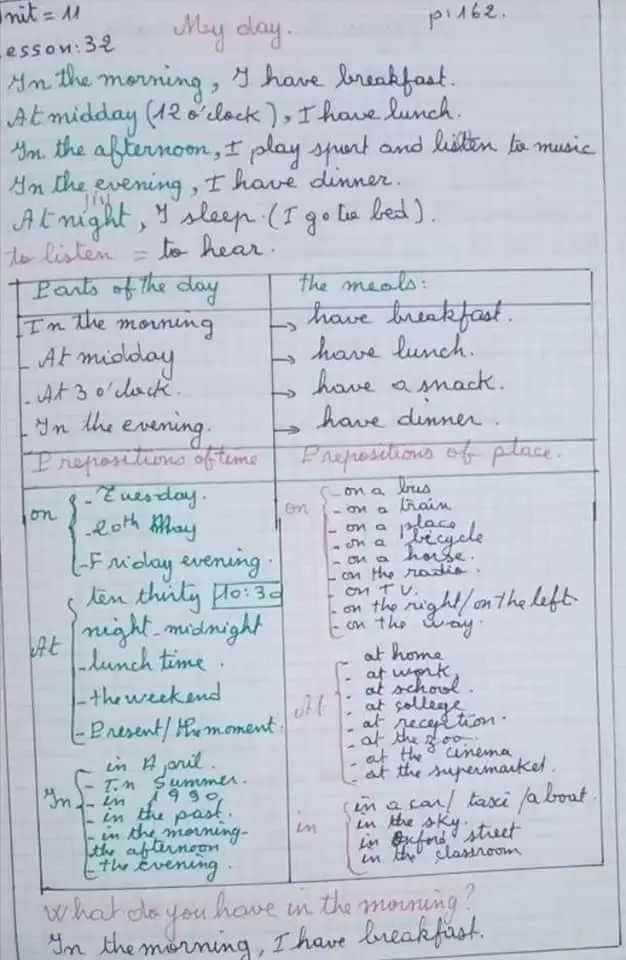 nit = 11
p: 162.
My day.
esson: 32
In the morning, I have breakfast.
At midday (12 o'clock), I have lunch.
In the afternoon, I play sport and listen to music
In the evening, I have dinner.
At night, I sleep. (I go to bed).
to listen = to hear.
Parts of the day
the meals:
In the morning → have breakfast.
- At midday → have lunch.
- At 3 o'clock. → have a snack.
- In the evening. → have dinner.
Prepositions of time
Prepositions of place.
on
- Tuesday.
- 20th May
- Friday evening.
At
ten thirty 10:30
night - midnight
- lunch time.
- the weekend
- Present / the moment.
In
- in April.
- In Summer.
- in 1990
- in the past.
- in the morning-
the afternoon
- the evening.
on
- on a bus
- on a train
- on a place
- on a bicycle
- on a horse.
- on the radio.
- on T.V.
- on the right/on the left
- on the way.
At
- at home
- at work
- at school.
- at college
- at reception.
- at the zoo.
- at the cinema
- at the supermarket.
in
in a car/ taxi /a boat.
in the sky.
in Oxford street
in the classroom
What do you have in the morning?
In the morning, I have breakfast.